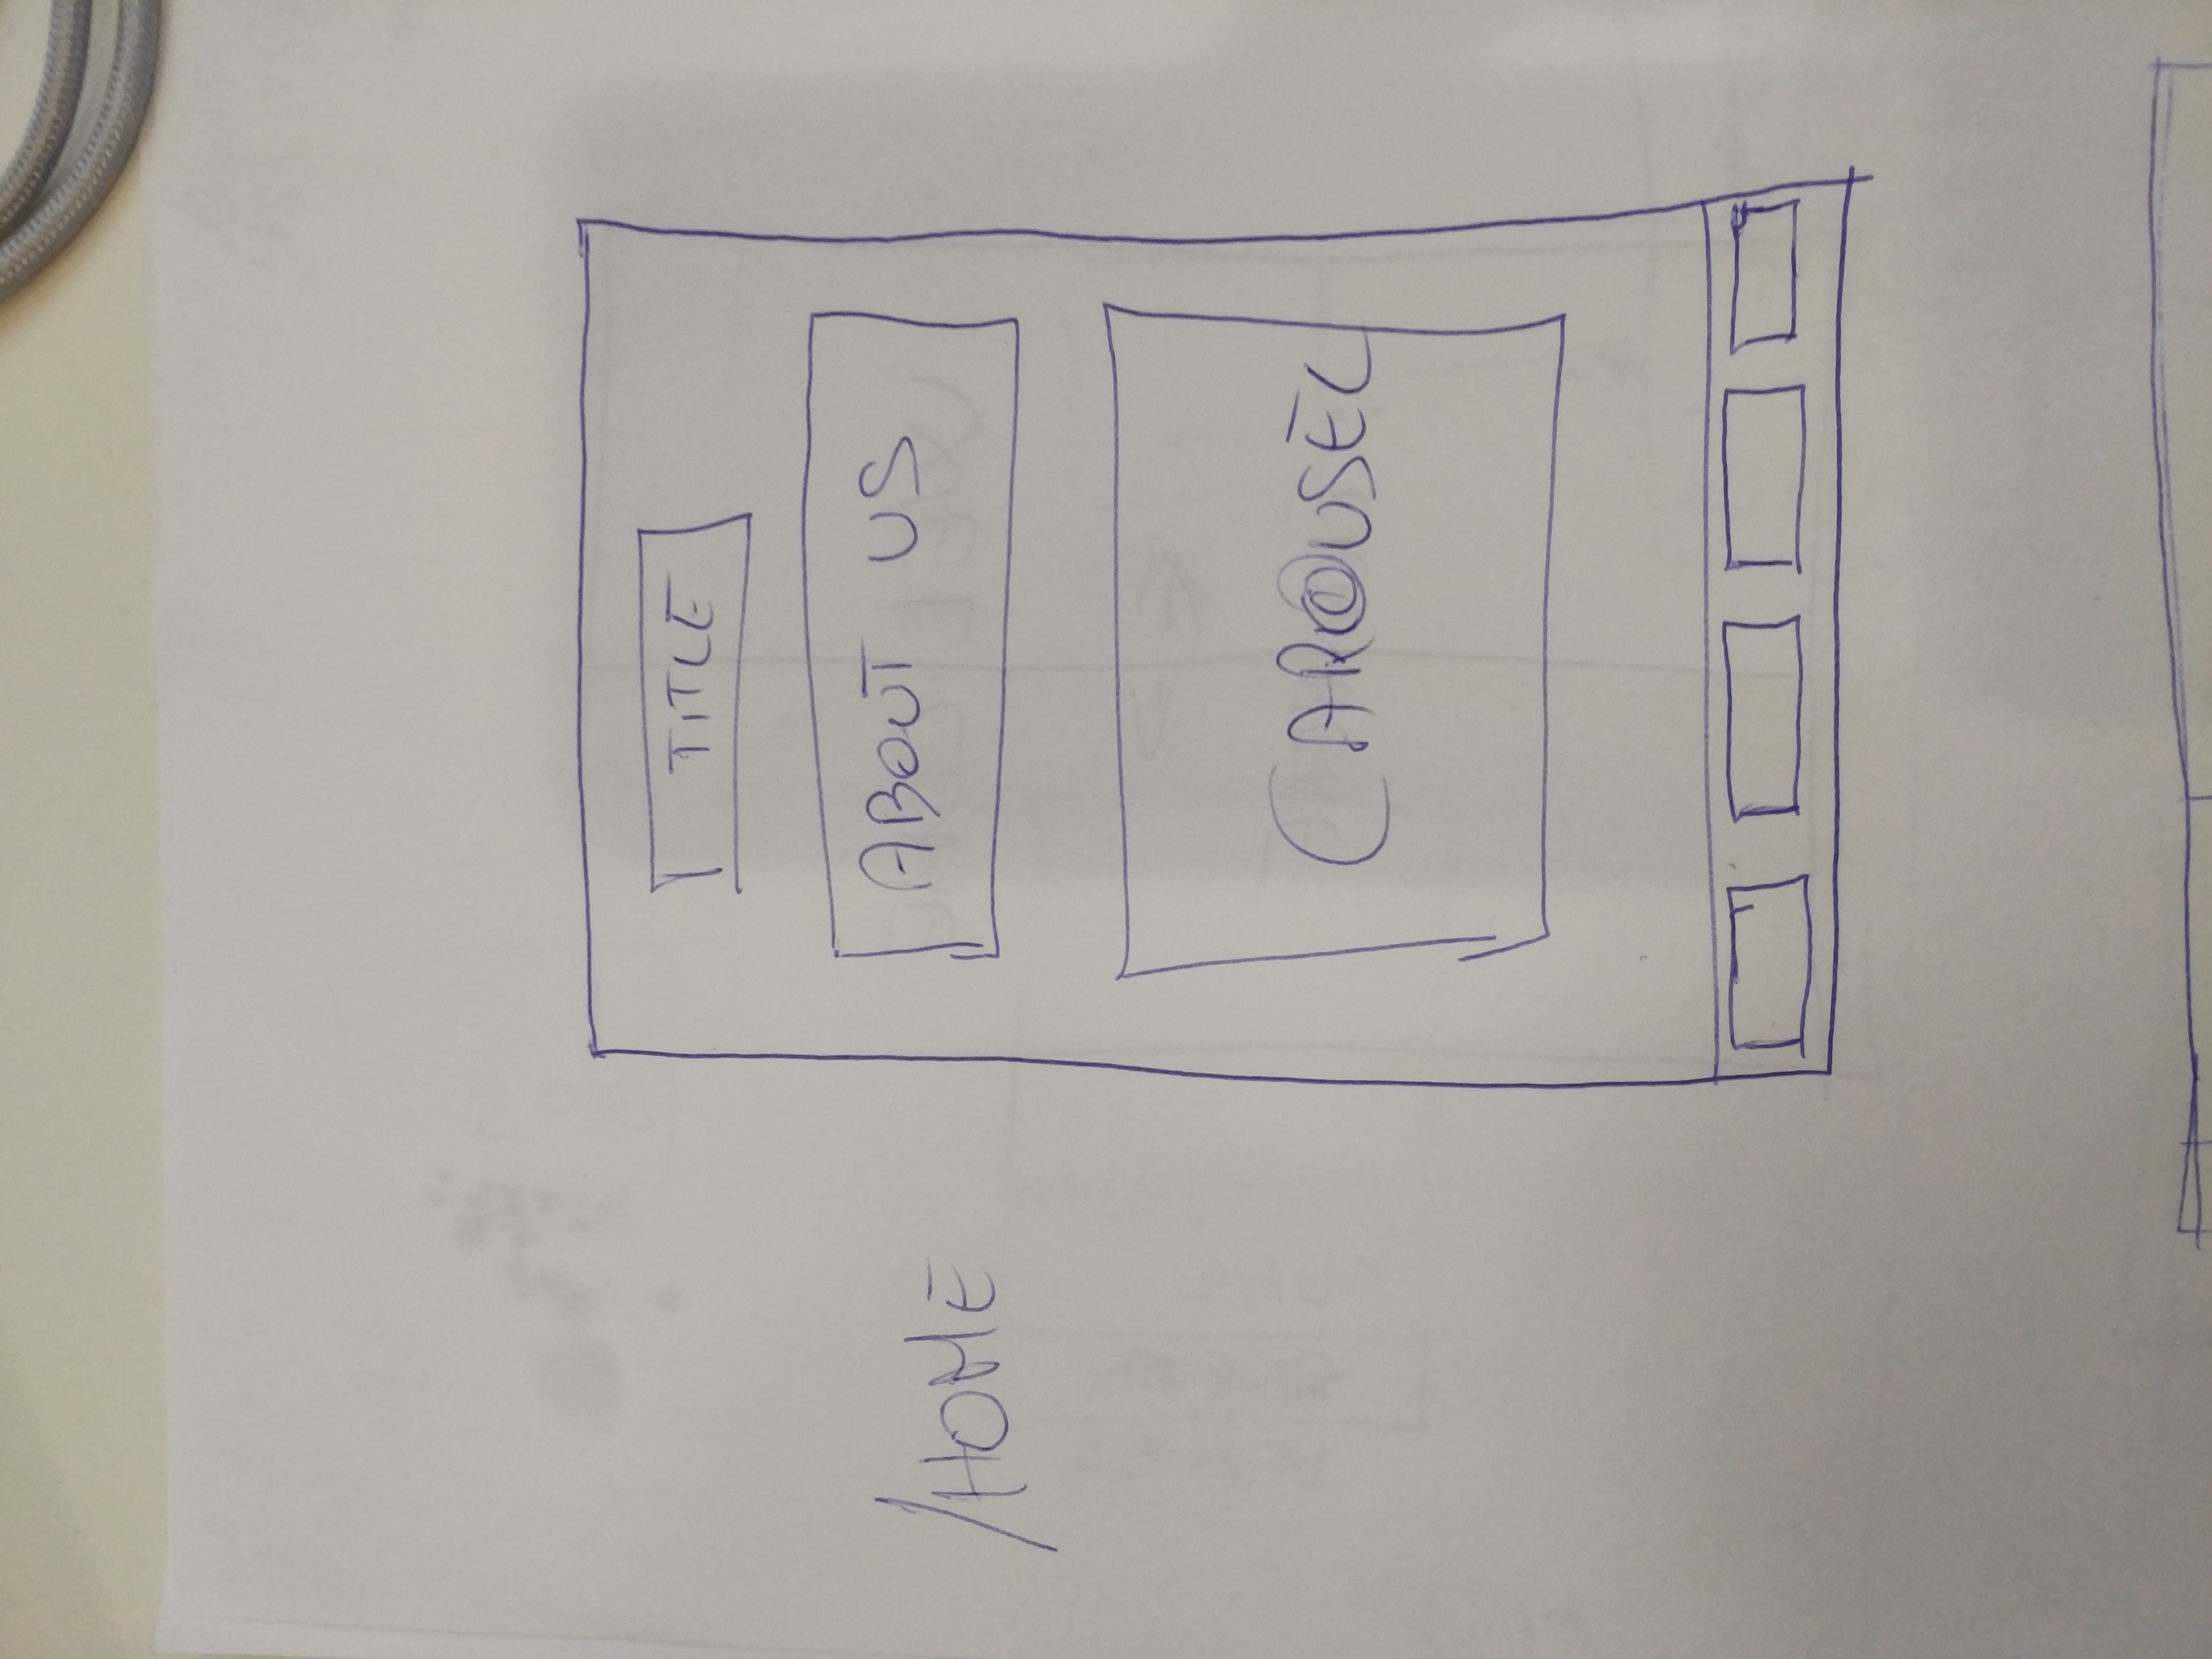 /HOME
TITLE
ABOUT US
CAROUSEL